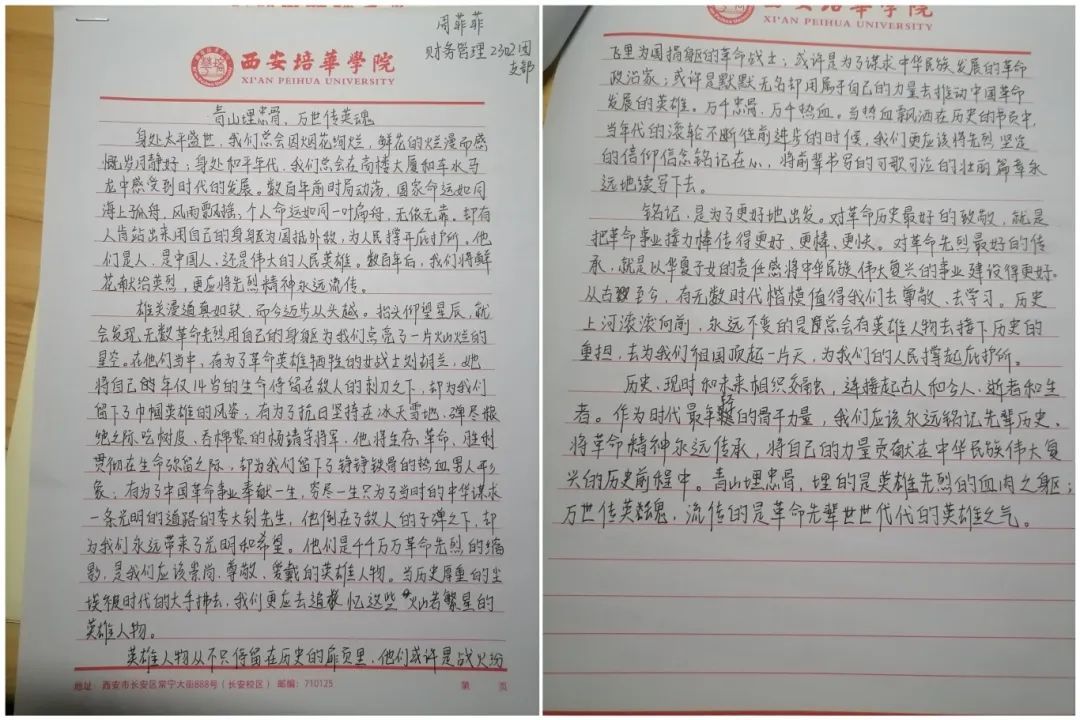 周菲菲
财务管理2302团
支部
西安培華學院
XI'AN PEIHUA UNIVERSITY
青山埋忠骨，万世传英魂
身处太平盛世，我们总会因烟花绚烂，鲜花的烂漫而感
慨岁月静好；身处和平年代，我们总会在高楼大厦和车水马
龙中感受到时代的发展。数百年前时局动荡，国家命运如同
海上孤舟，风雨飘摇；个人命运如同一叶扁舟，无依无靠。却有
人肯站出来用自己的身躯为国抵外敌，为人民撑开庇护所。他
们是人，是中国人，还是伟大的人民英雄。数百年后，我们将鲜
花献给英烈，更应将先烈精神永远流传。
雄关漫道真如铁，而今迈步从头越。抬头仰望星辰，就
会发现，无数革命先烈用自己的身躯为我们点亮了一片灿烂的
星空。在他们当中，有为了革命英雄牺牲的女战士刘胡兰，她
将自己的年仅14岁的生命停留在敌人的刺刀之下，却为我们
留下了巾帼英雄的风姿；有为了抗日坚持在冰天雪地、弹尽粮
绝之际吃树皮、吞棉絮的杨靖宇将军，他将生存、革命、胜利
贯彻在生命弥留之际，却为我们留下了铮铮铁骨的热血男人形
象；有为了中国革命事业奉献一生，穷尽一生只为了当时的中华谋求
一条光明的道路的李大钊先生，他倒在了敌人的子弹之下，却
为我们永远带来了光明和希望。他们是千千万万革命先烈的缩
影，是我们应该崇尚、尊敬、爱戴的英雄人物。当历史厚重的尘
埃被时代的大手拂去，我们更应去追忆这些灿若繁星的
英雄人物。
英雄人物从不只停留在历史的扉页里，他们或许是战火纷
地址：西安市长安区常宁大街888号（长安校区） 邮编：710125 第 页
西安培華學院
XI'AN PEIHUA UNIVERSITY
飞里为国捐躯的革命战士；或许是为了谋求中华民族发展的革命
政治家；或许是默默无名却用属于自己的力量去推动中国革命
发展的英雄。万千忠骨，万千热血。当热血飘洒在历史的书页中，
当年代的滚轮不断往前进步的时候，我们更应该将先烈坚定
的信仰信念铭记在心，将前辈书写的可歌可泣的壮丽篇章永
远地续写下去。
铭记，是为了更好地出发。对革命历史最好的致敬，就是
把革命事业接力棒传得更好、更棒、更快。对革命先烈最好的传
承，就是以华夏子女的责任感将中华民族伟大复兴的事业建设得更好。
从古至今，有无数时代楷模值得我们去尊敬、去学习。历史
上河滚滚向前，永远不变的是总会有英雄人物去接下历史的
重担，去为我们祖国顶起一片天，为我们的人民撑起庇护所。
历史、现时和未来相织交融，连接起古人和今人、逝者和生
者。作为时代最年轻的骨干力量，我们应该永远铭记先辈历史，
将革命精神永远传承，将自己的力量贡献在中华民族伟大复
兴的历史前程中。青山埋忠骨，埋的是英雄先烈的血肉之躯；
万世传英魂，流传的是革命先辈世世代代的英雄之气。